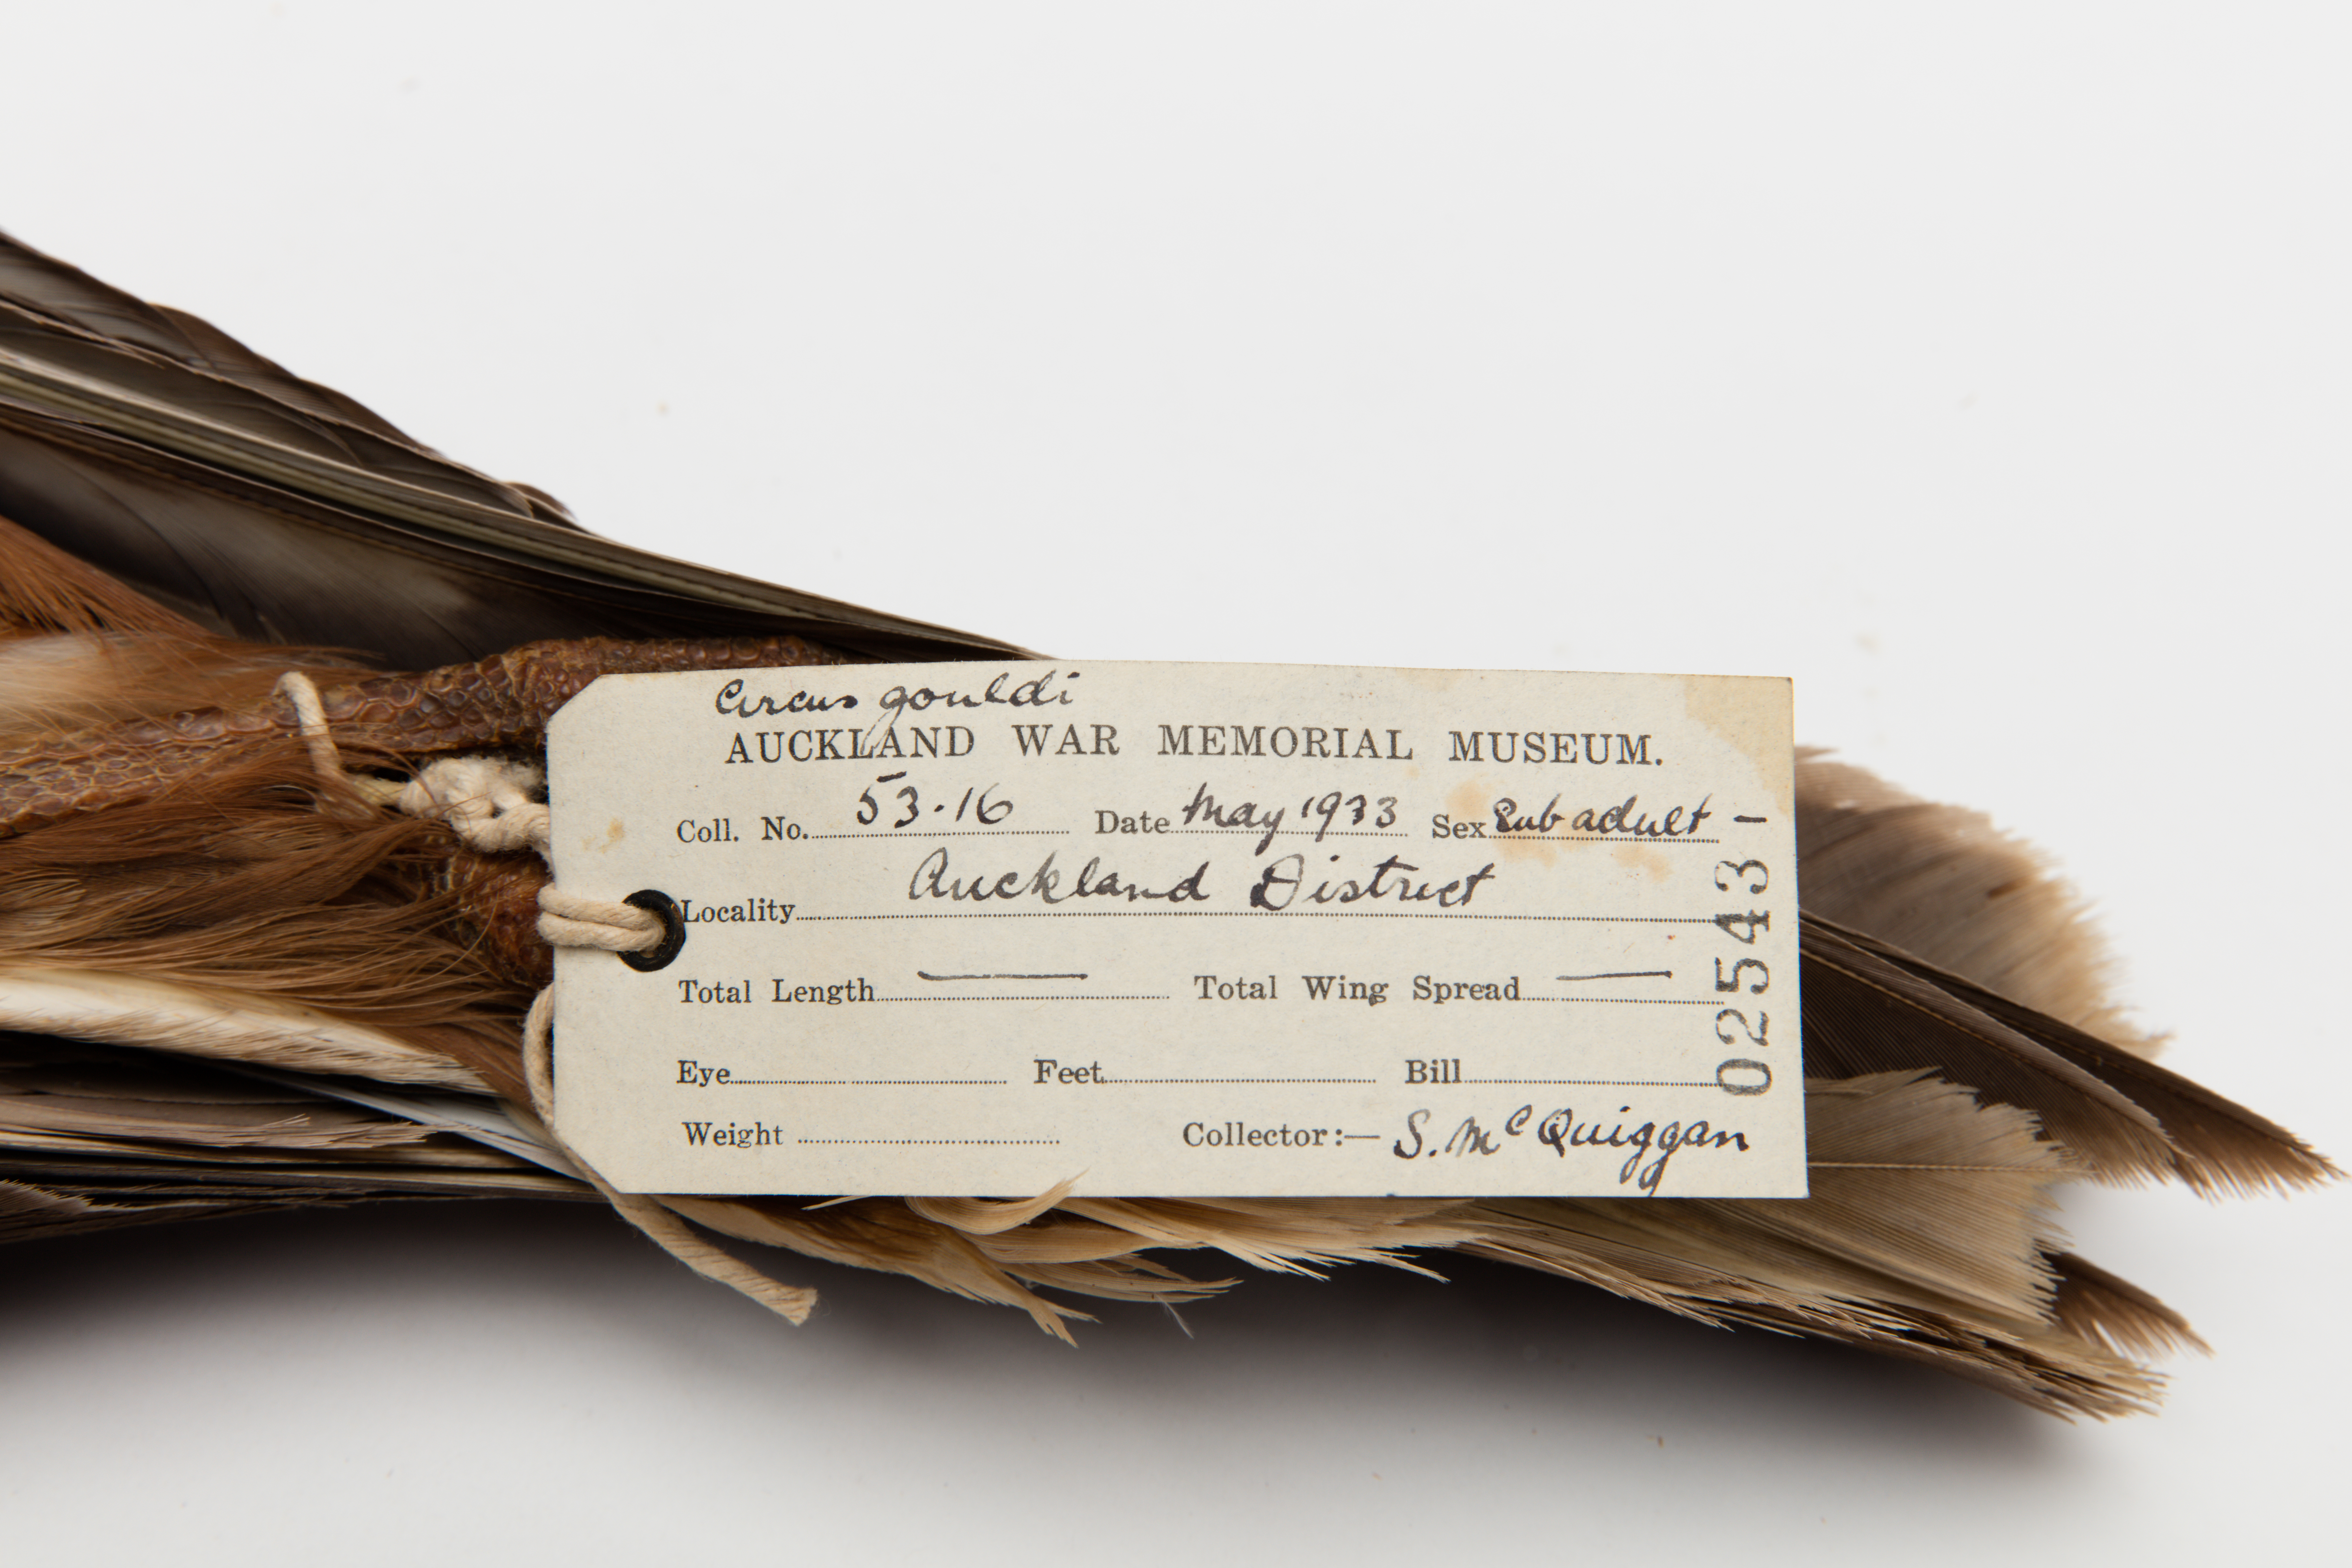 Circus gouldi
AUCKLAND WAR MEMORIAL MUSEUM.
Coll. No. 53.16 Date May 1933 Sex Sub adult –
Locality Auckland District
Total Length — Total Wing Spread —
Eye Feet Bill
Weight Collector:— S. McQuiggan
02543